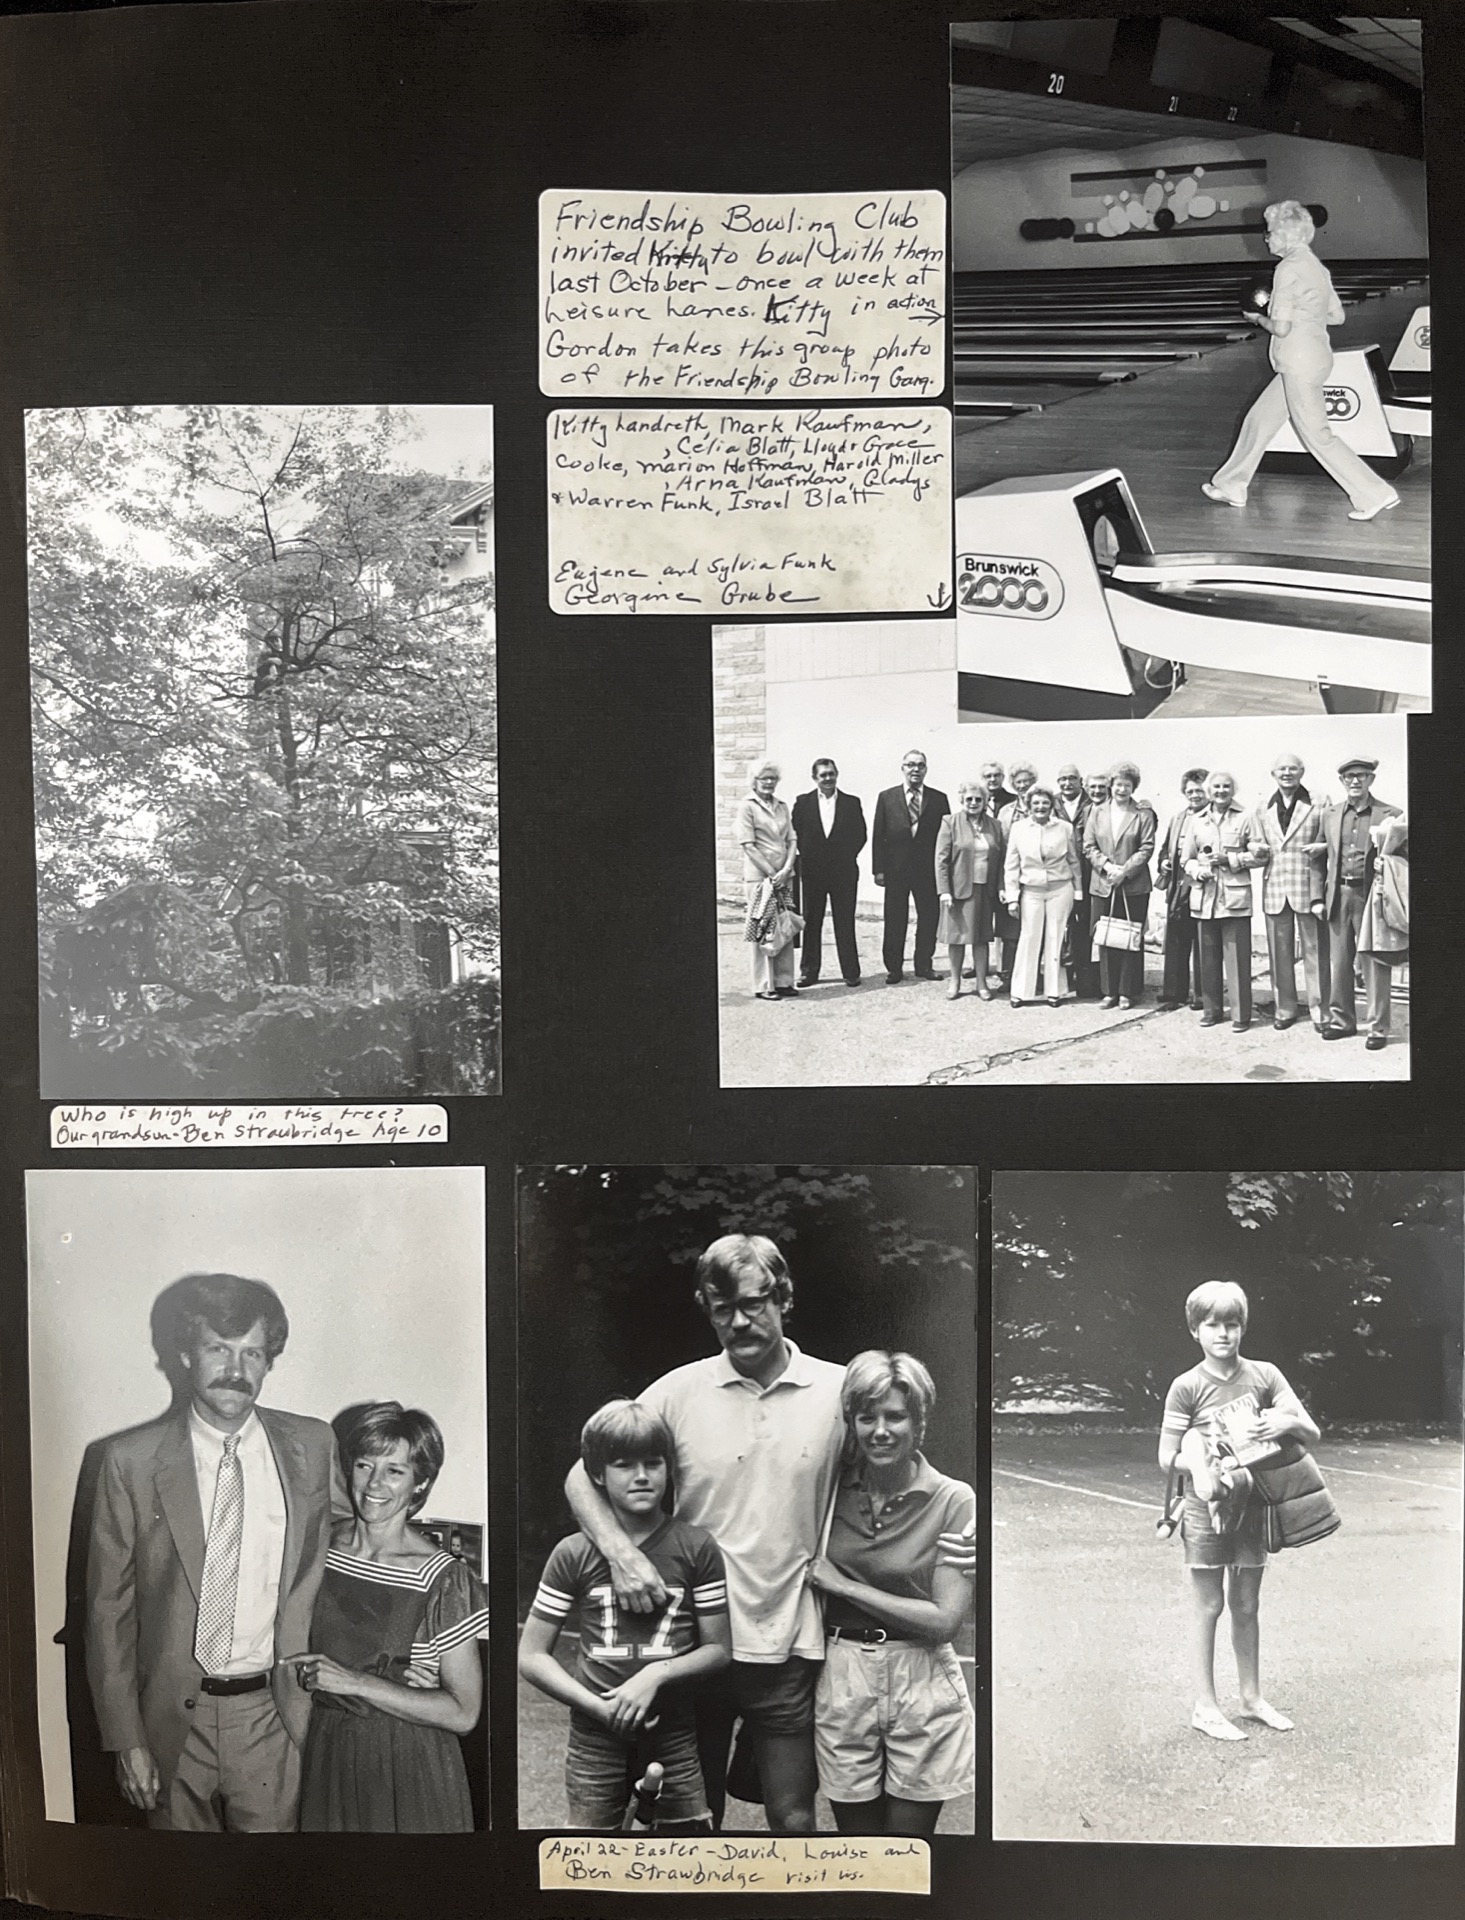 Friendship Bowling Club
invited Kitty to bowl with them
last October - once a week at
Leisure Lanes. Kitty in action →
Gordon takes this group photo
of the Friendship Bowling Gang.
Kitty Landreth, Mark Kaufman,
, Celia Blatt, Lloyd & Grace
Cooke, Marion Hoffman, Harold Miller
, Arna Kaufman, Gladys
& Warren Funk, Israel Blatt
Eugene and Sylvia Funk
Georgine Grube ↓
20
21
22
Brunswick
2000
wick
00
Who is high up in this tree?
Our grandson - Ben Strawbridge Age 10
17
April 22 - Easter - David, Louise and
Ben Strawbridge visit us.